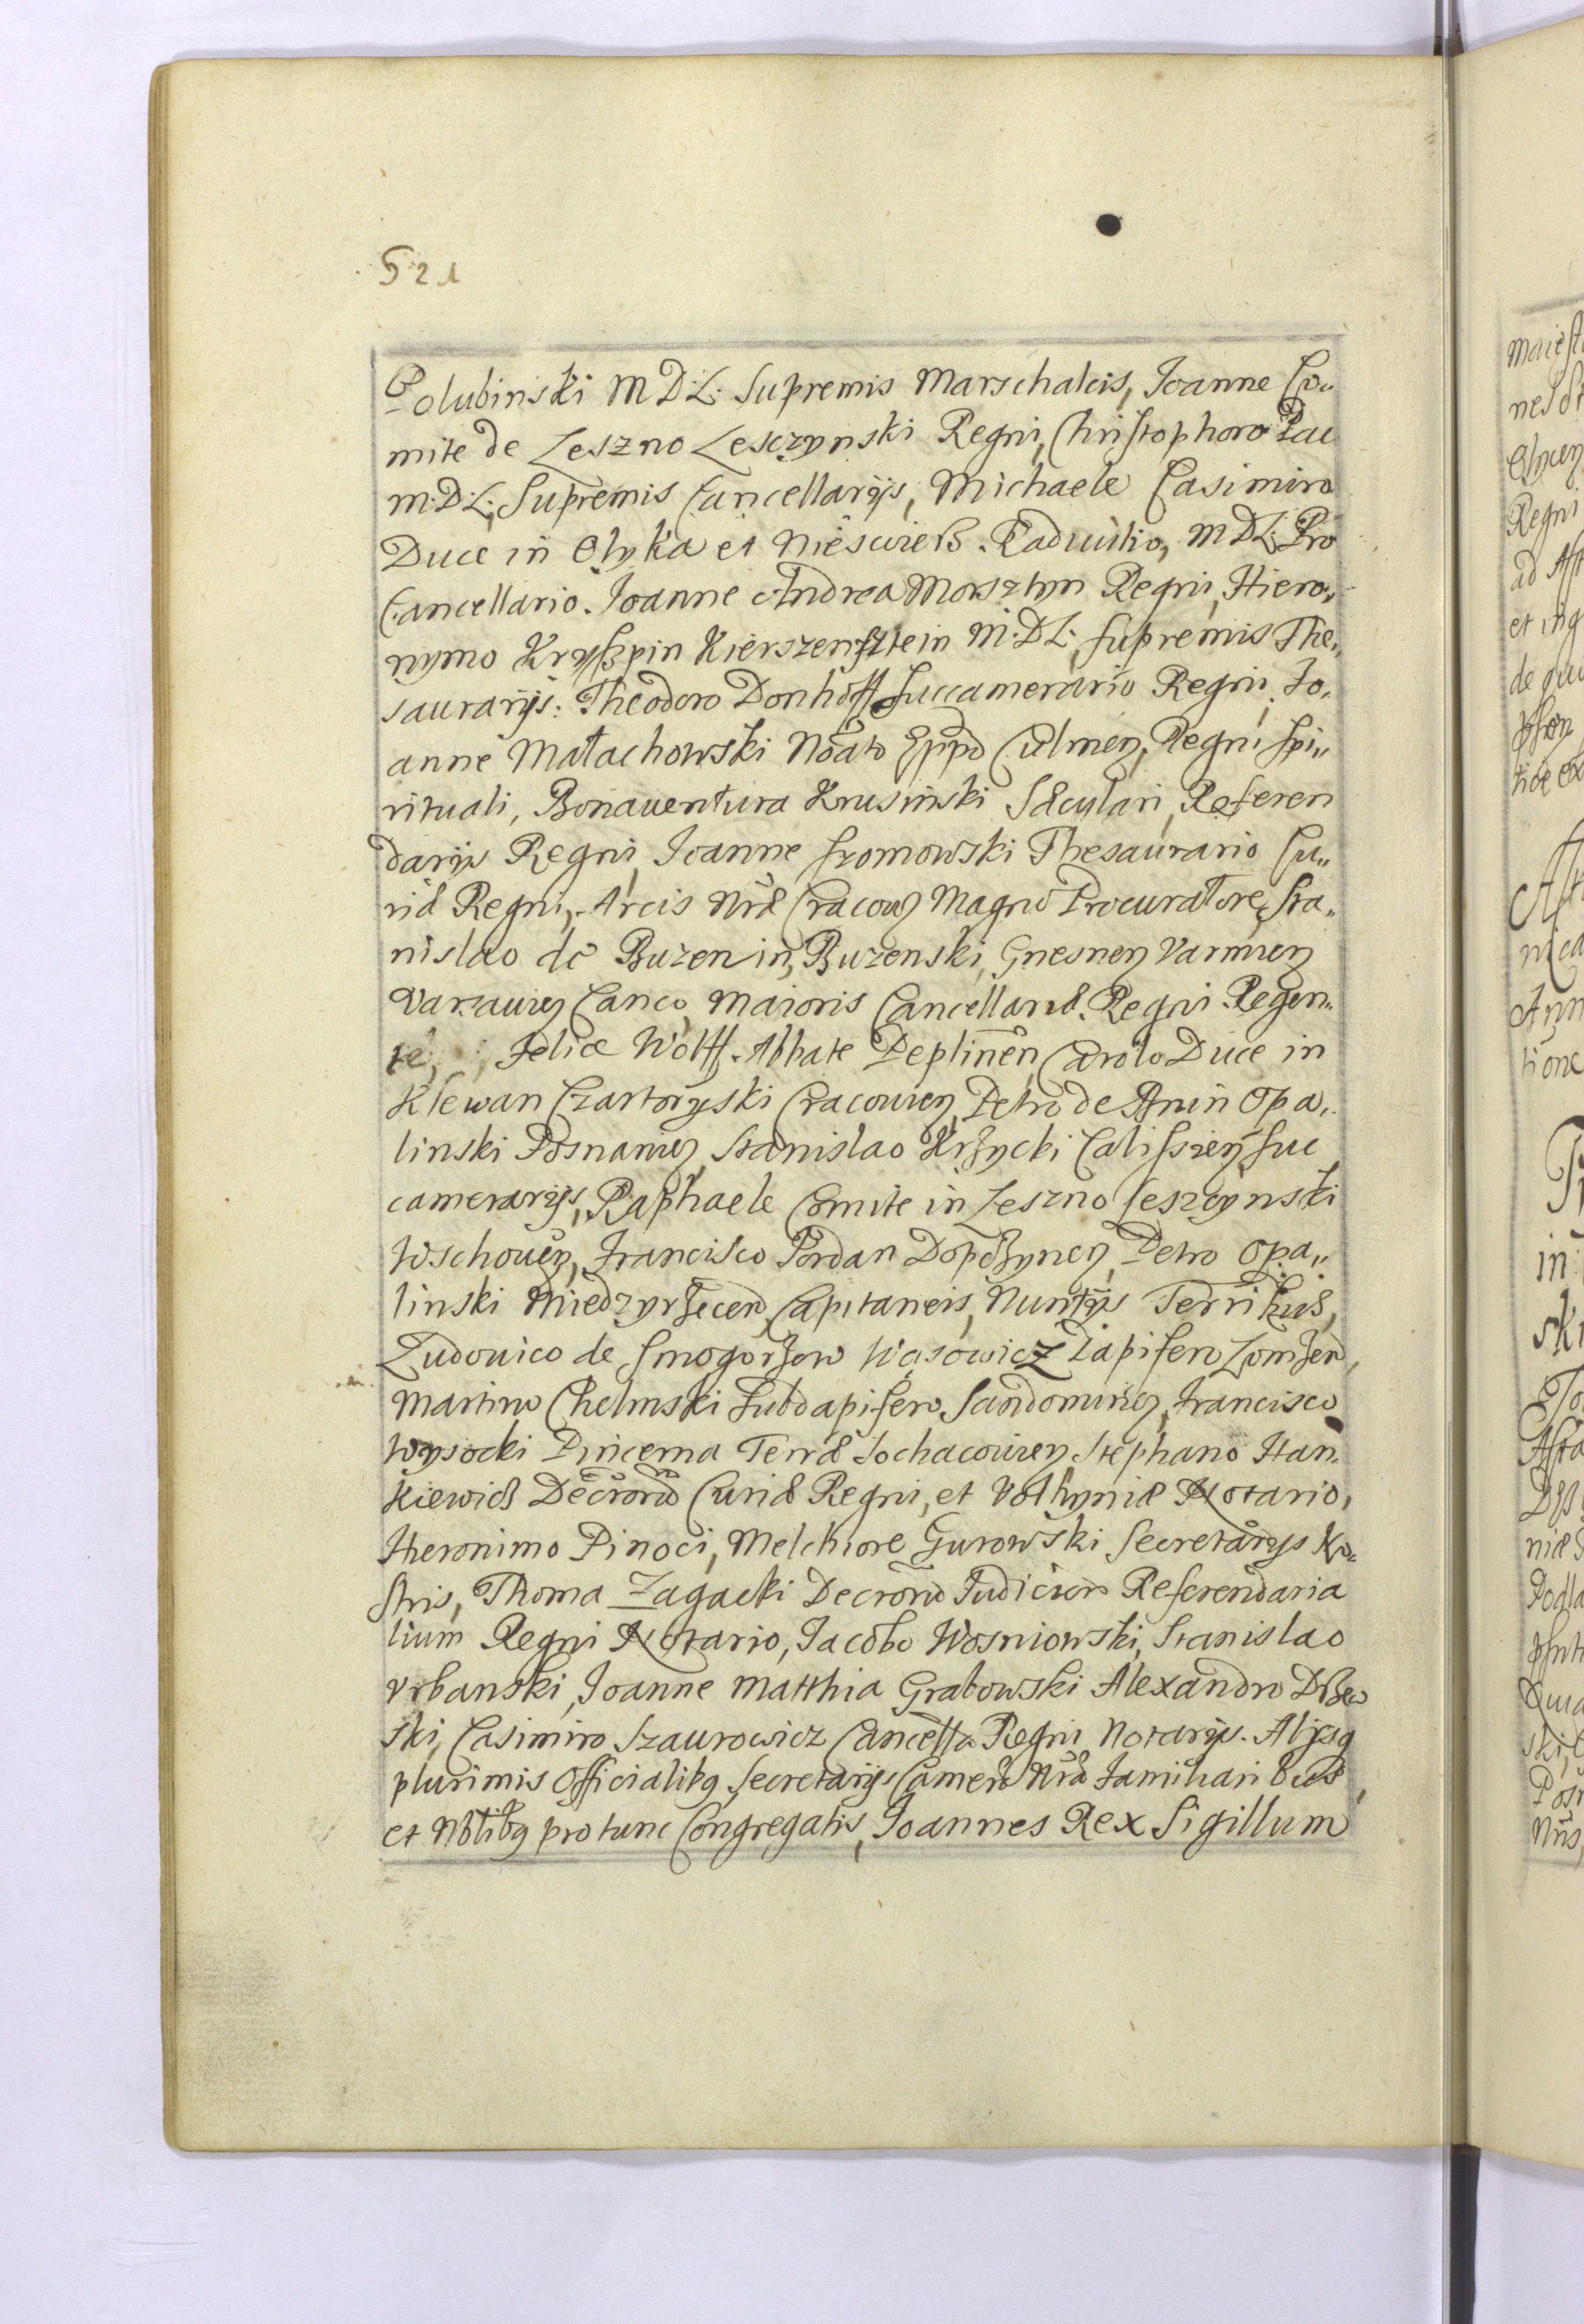 521
Polubinski M D: L: Supremis Marschalcis, Joanne Co„
mite de Leszno Lesczynski Regni, Christophoro Pac
M: D: L: Supremis Cancellarijs, Michaele Casimiro
Duce in Olyka et Nieswiesz. Radiuilio, M D L: Pro
Cancellario. Joanne Andrea Morsztyn Regni, Hiero„
nymo Kryszpin Kierszensztein M: D L: supremis The„
saurarijs: Theodoro Donhoff Succamerario Regni, Jo„
anne Małachowski Noãto Eppo Culmeñ, Regni Spi„
rituali, Bonauentura Krusinski Sæculari, Referen
darijs Regni, Joanne Gromowski Thesaurario Cu„
riæ Regni, Arcis Nr̃æ Cracouieñ Magno Procuratore, Sta„
nislao de Buzen in Buzenski, Gnesneñ Varmieñ
Varsauieñ Canco, Maioris Cancellariæ Regni Regen„
te, Felice Wolff Abbate Peplineñ, Carolo Duce in
Klewan Czartoryski Cracouieñ, Petro de Bnin Opa„
linski Posnanieñ, Stanislao Krzycki Calissieñ Suc
camerarijs, Raphaele Comite in Leszno Leszczynski
Wschoueñ, Francisco Jordan Dopczyneñ, Petro Opa„
linski Miedzyrzeceñ Capitaneis, Nuntijs Terribus,
Ludouico de Smogorzow Wąsowicz Dapifero Łomzeñ,
Martino Chelmski Subdapifero Sandomirieñ, Francisco
Wysocki Pincerna Terræ Sochacouieñ, Stephano Han„
kiewicz Decror̃ Curiæ Regni, et Volhyniæ Notario,
Hieronimo Pinoci, Melchiore Gurowski Secretarijs No„
stris, Thoma Zagacki Decror̃ Judicior̃ Referendaria
lium Regni Notario, Jacobo Wosniowski, Stanislao
Vrbanski, Joanne Matthia Grabowski Alexandro
ski, Casimiro Szaurowicz Cancellæ Regni Notarijs. Alijsq
plurimis Officialibq Secretarijs Cameræ Nr̃æ Familiaribus
et Nblibq protunc Congregatis, Joannes Rex Sigillum